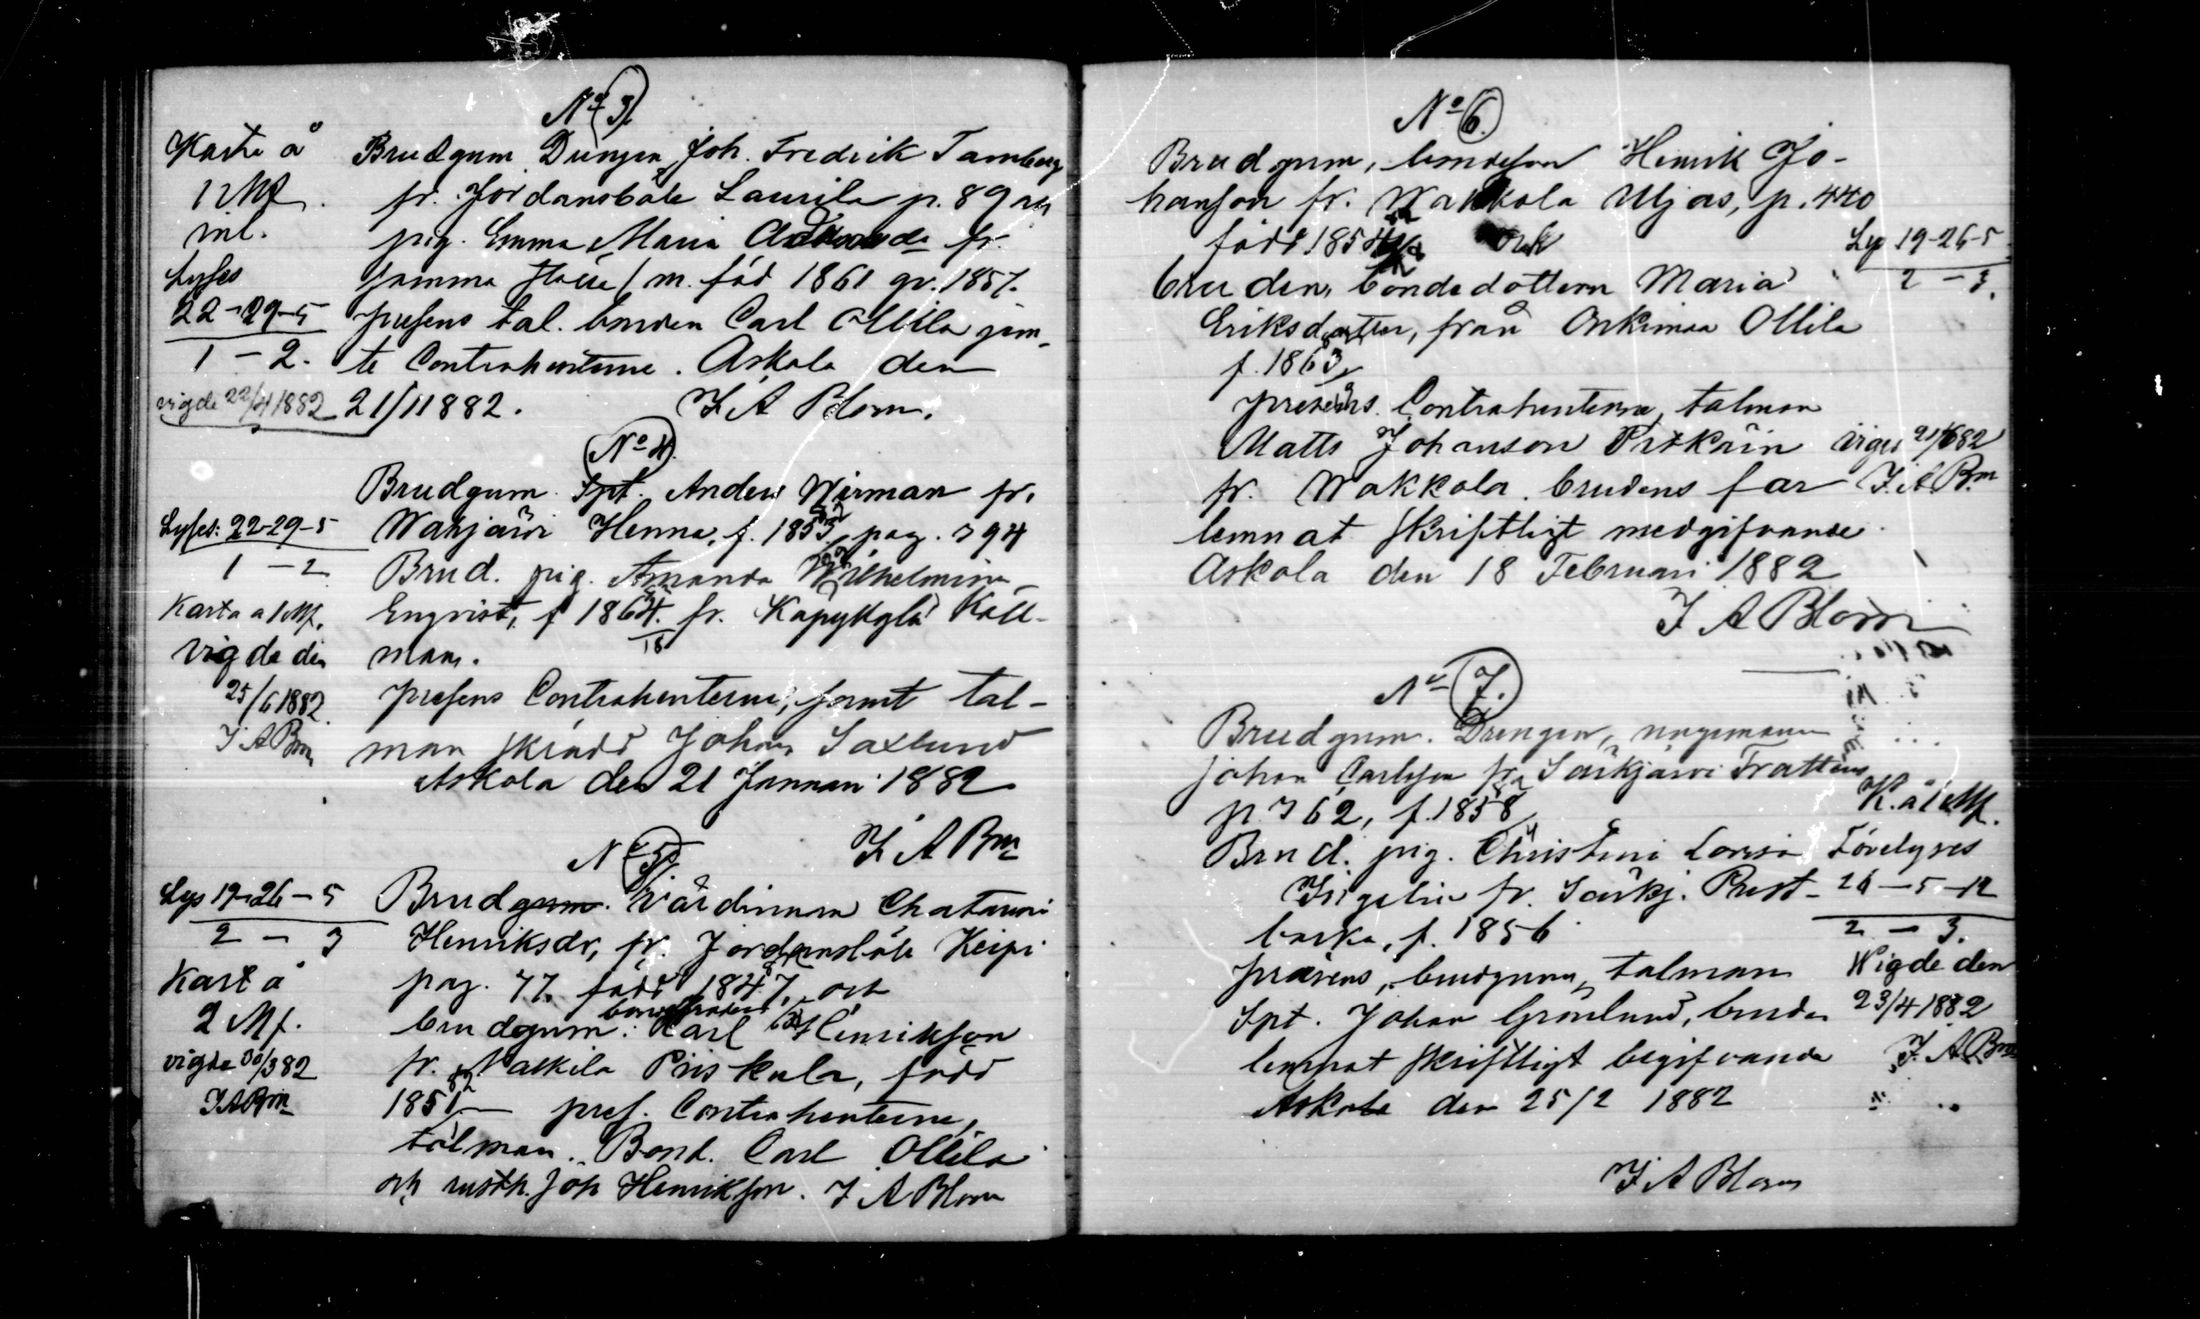 No 3.
Karta å
1 Mk
inl.
Lyses
22-29-5
1-2.
vigde 22/4 1882
Brudgum Drengen Joh. Fredrik Tamberg
fr. Jordansböle Laurila p. 89 och
pig. Emma Maria fr.
samma / m. föd 1861 gr. 1857.
presens tal. bonden Carl Ollila jem-
te Contrahenterne. Askola den
21/1 1882. F A Blom.
No 4.
Lyses: 22-29-5
1-2
Karta a 1 Mk.
vigde den
25/6 1882
F A Bm
Brudgum Spt. Anders Wirman fr.
Wahijärvi Henna, f. 1853, pag. 794
Brud. pig. Amanda Wilhelmina
Enqvist, f 1864. fr. Kapykylä Käll-
man.
presens Contrahenterne, samt tal-
man skrädd Johan Saxlund
Askola den 21 Januari 1882
F A Bm
No 5.
Lys 19-26-5
2-3
Kart å
2 Mk.
vigda 30/3 82
F A Bm
Brudgum. Värdinnan Chatarina
Henriksdr, fr. Jordansböle Keipi
pag. 77. född 1847, och
brudgum: Karl Henriksson
fr. Nalkila Priskula, född
1851 — pres. Contrahenterne,
talman. Bond. Carl Ollila
och rusth. Joh Henriksson. F A Blom
No 6.
Brudgum, bondeson Henrik Jo-
hanson fr. Wakkola Uljas, p. 440
född 1854 och
bruden, bondedottern Maria
Eriksdotter, från Onkimaa Ollila
f. 1863,
presens Contrahenterne, talman
Matts Johanson Pitkäin
fr. Wakkola. brudens far
lemnat skriftligt medgifvande
Askola den 18 Februari 1882
F A Blom
Ly 19-26-5
2-3.
viges 21/6 82
F. A Bm
No 7.
Brudgum. Drengen, ungemannen
Johan Carlsson fr. Särkjärvi Trattens
p. 762, f. 1858
Brud. pig. Christina Lovisa
fr. Särkj. Prest-
backa, f. 1856
präsens, brudgum, talman
Spt. Johan Grönlund, bruden
lemnat skriftligt begifvande
Askola den 25/2 1882
F A Blom
K. a 1 Mk.
Förelyses
26-5-12
2-3.
Wigde den
23/4 1882
F. A Bm